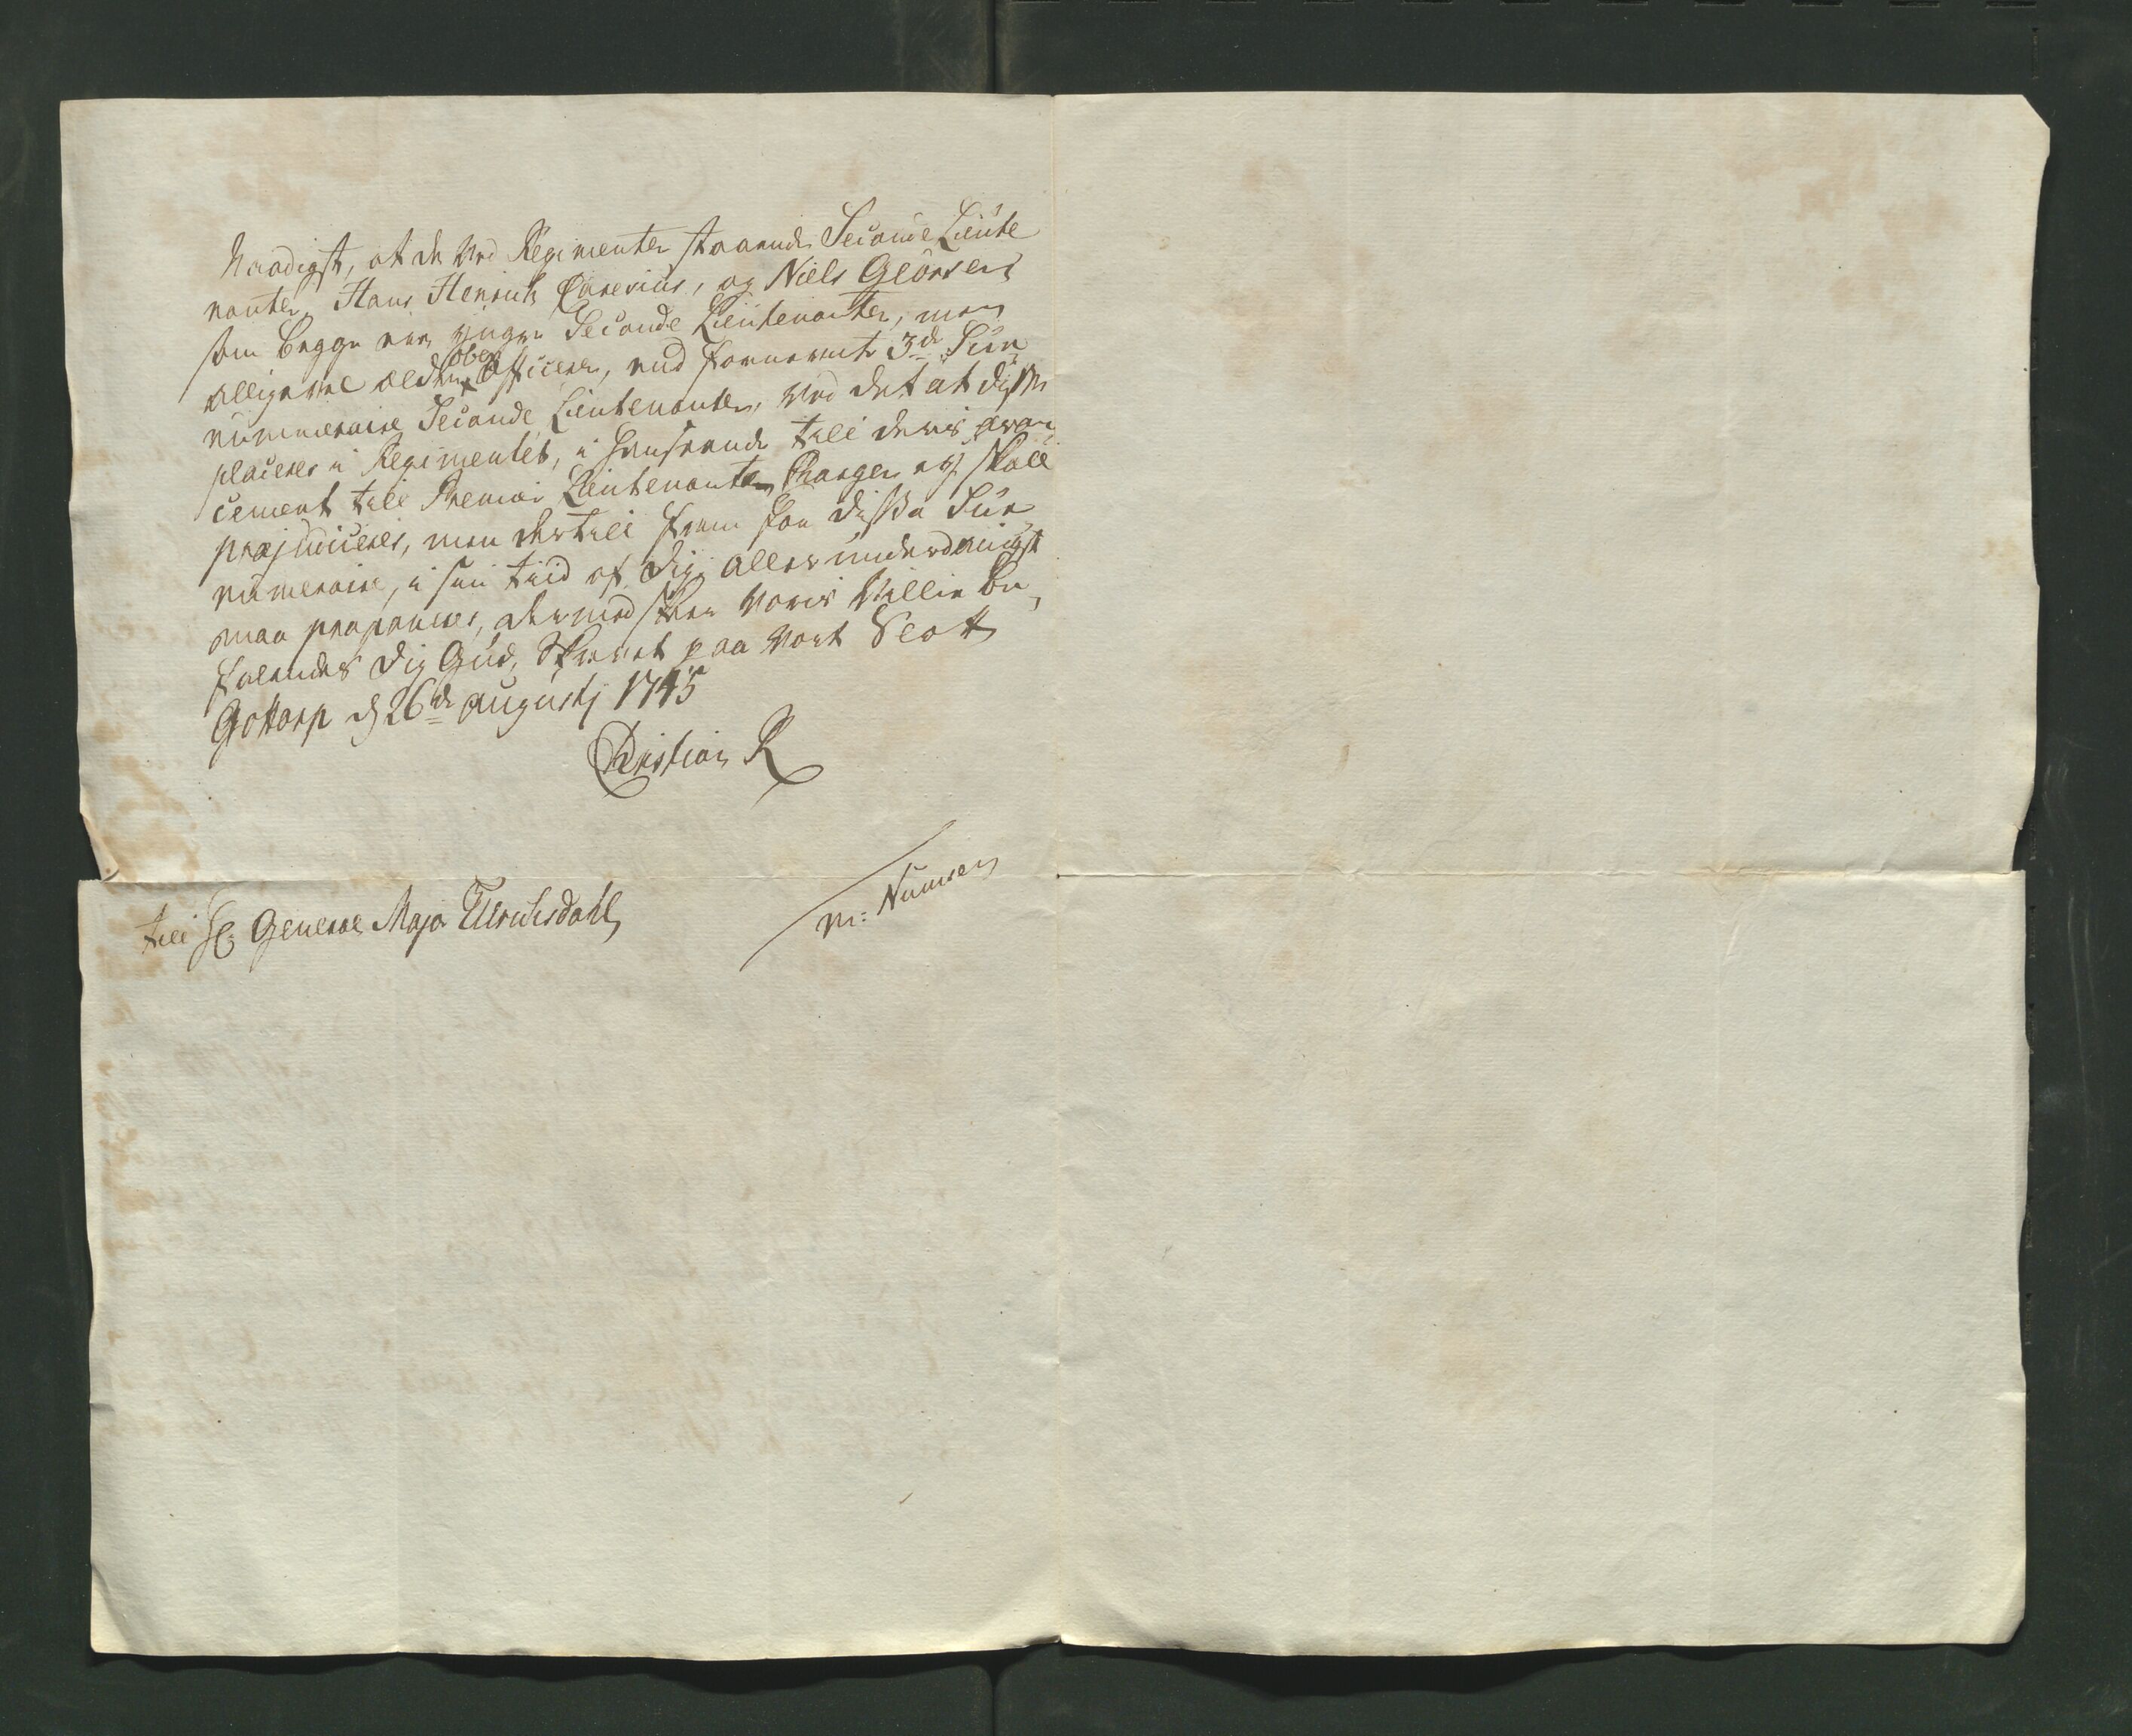 Naadigst, at de ved Regimentet staaende Seconde Lieute
nanter, Hans Henrich Carenius, og Niels Giörsen
som begge ere yngre Seconde Lieutenanter, men
alligevel ældre ober Officerer, end forneunte 3de Sur
nummeraire Seconde Lieutenanter, ved det at disse
placeres i Regimentet, i henseende till deres avan
cement till Premier Lieutenanter Charger ej skall
præjudiceres, men dertill frem for disse Sur
numeraire, i sin tiid af dig allerunderdanigst
maa proponeres, dermed skeer Voris Villie Be,
falendes dig Gud, Skrevet paa Vort Slott
Gottorp d 26de Augustj 1745
Christian R
M: Numsen
till H: General Major Ulrichsdahl